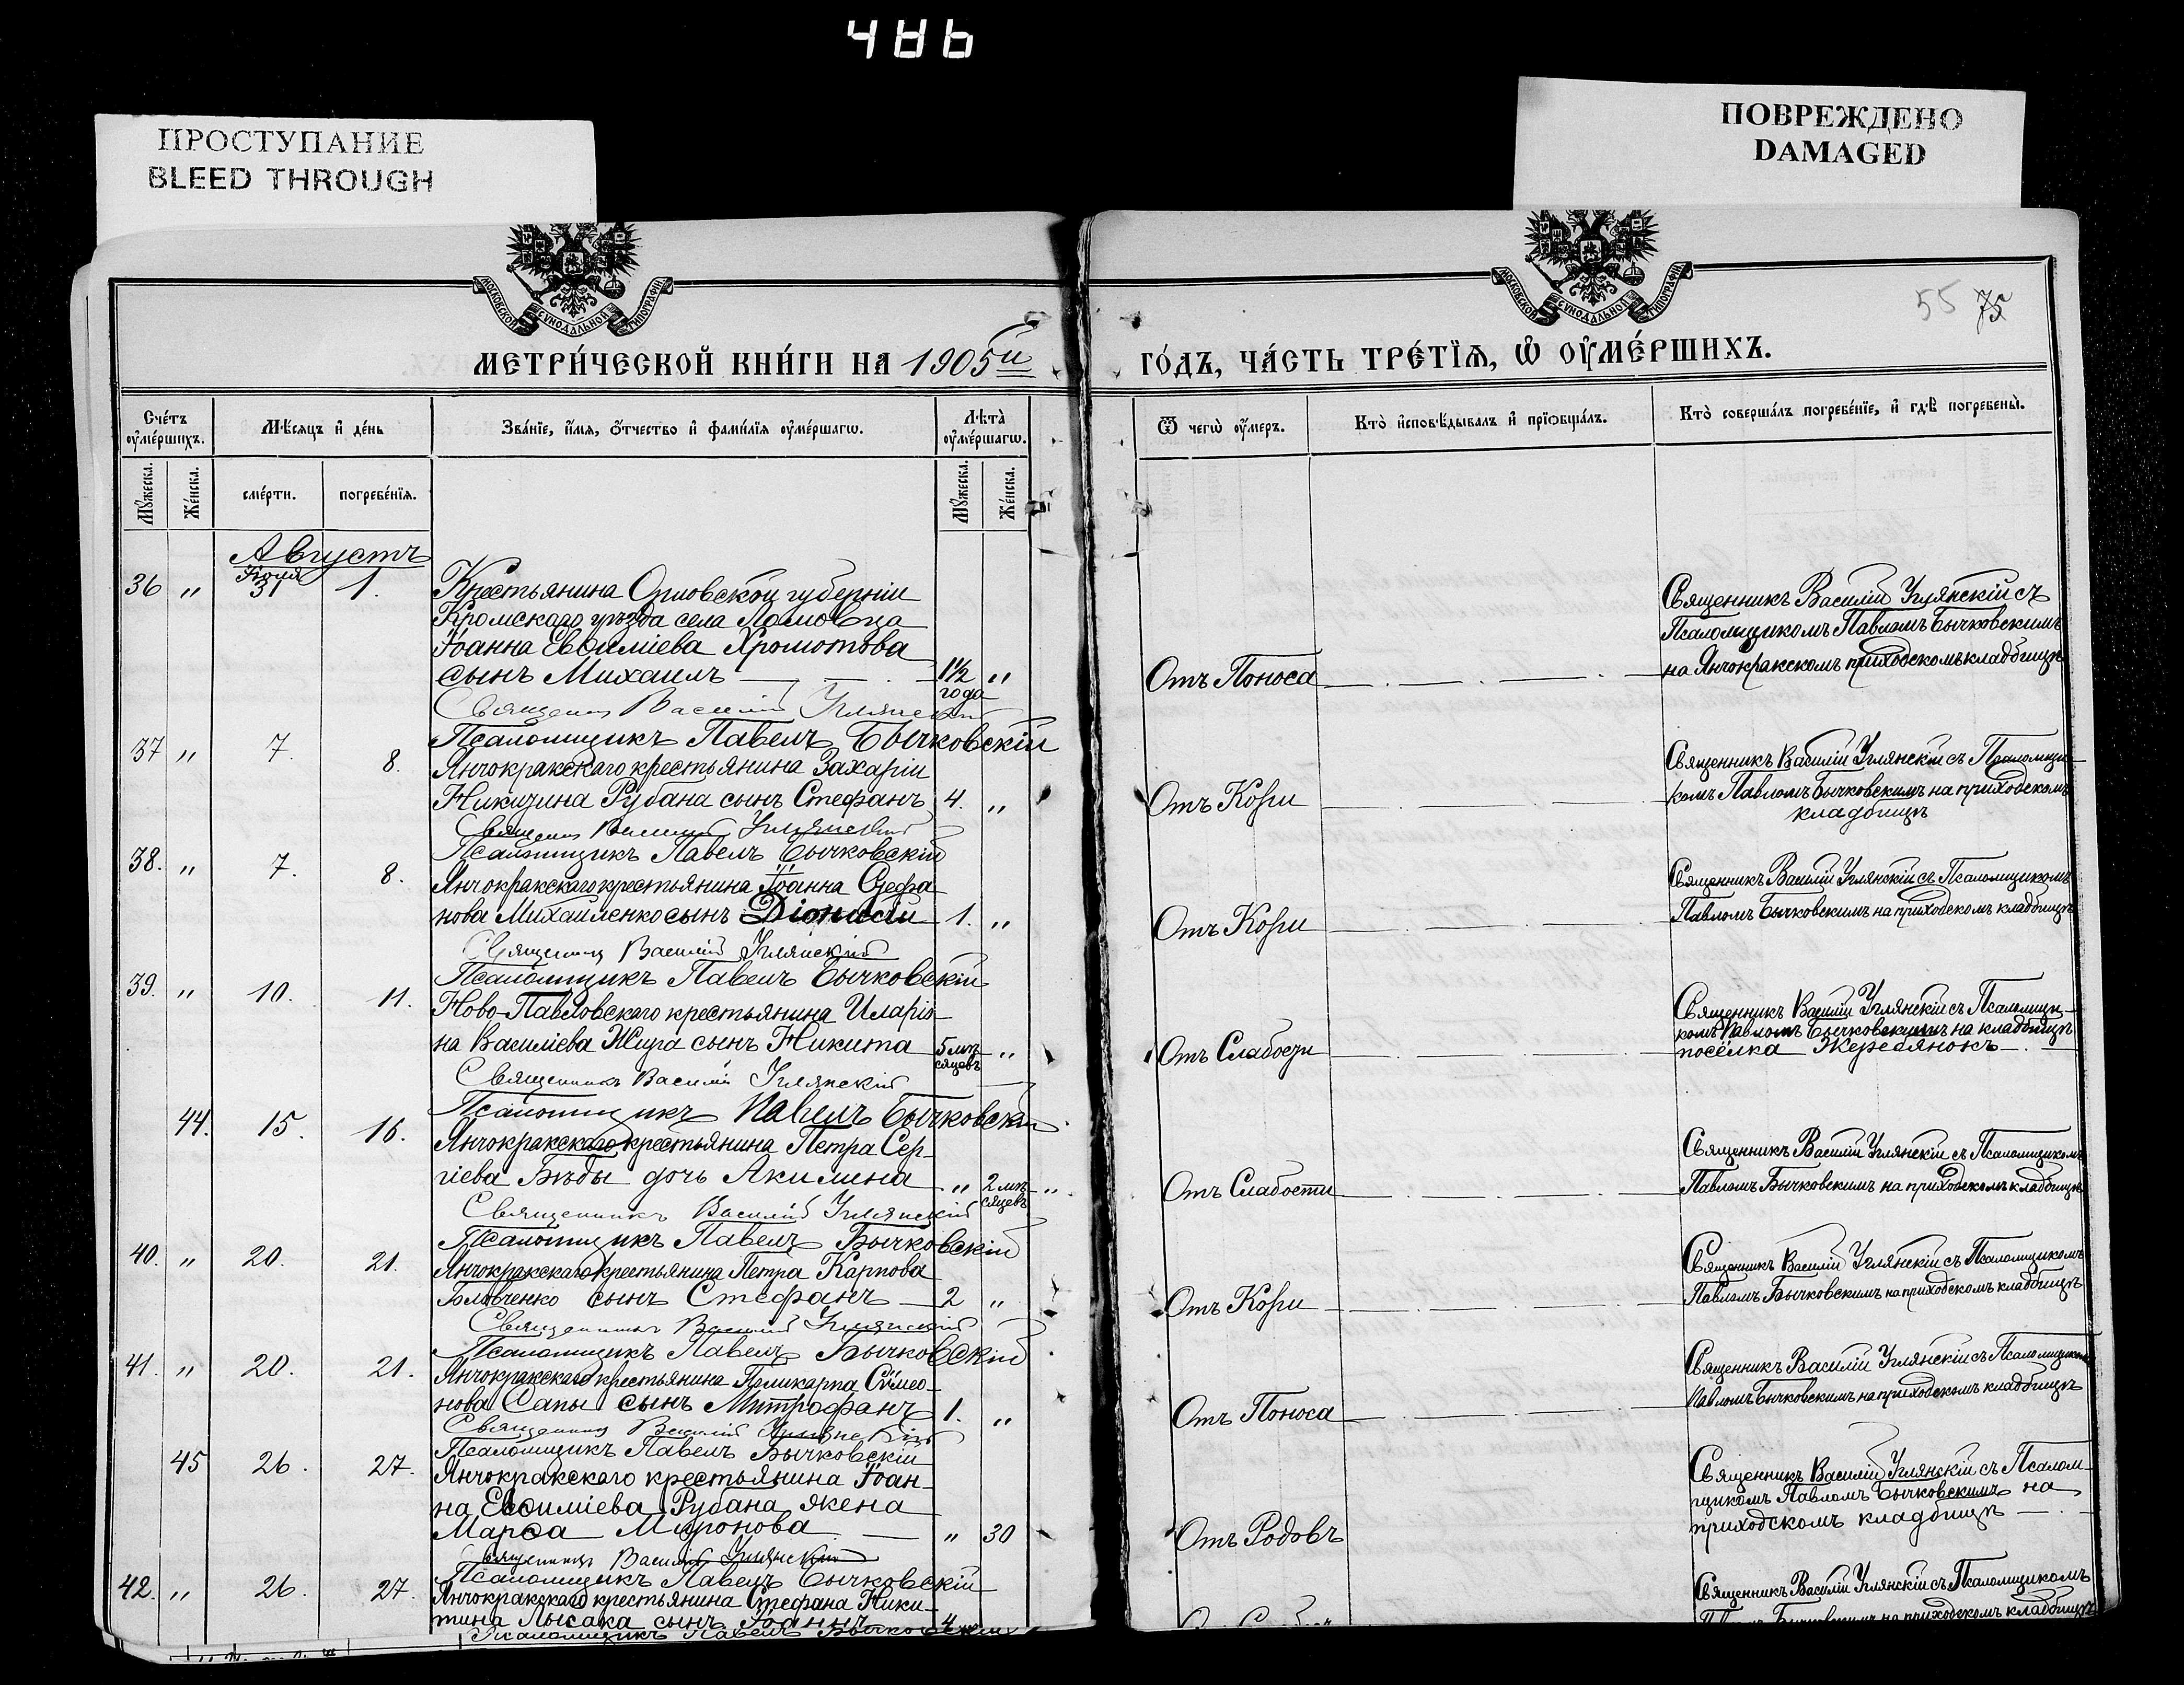 486
ПРОСТУПАНИЕ
BLEED THROUGH
ПОВРЕЖДЕНО
DAMAGED
МОСКОВСКОЙ СѴНОДАЛЬНОЙ ТИПОГРАФІИ
МОСКОВСКОЙ СѴНОДАЛЬНОЙ ТИПОГРАФІИ
55 75
МЕТРИ́ЧЕСКОЙ КНИ́ГИ НА 1905й
ГО́ДЪ, ЧА́СТЬ ТРЕ́ТЇѦ, Ѡ҆ ОУ҆МЕ́РШИХЪ.
Сче́тъ оу҆ме́ршихъ.
Мѣ́сѧцъ и҆ де́нь
Зва́нїе, и҆́мѧ, ѻ҆́тчество и҆ фами́лїѧ оу҆ме́ршагѡ.
Лѣ́та оу҆ме́ршагѡ.
Ѿ чегѡ̀ оу҆́меръ.
Кто̀ и҆сповѣ́дывалъ и҆ прїѡбща́лъ.
Кто̀ соверша́лъ погребе́нїе, и҆ гдѣ̀ погребены̀.
Мꙋ́жеска.
Же́нска.
сме́рти.
погребе́нїѧ.
Мꙋ́жеска.
Же́нска.
Августъ
36 " Іюля 31 1. Крестьянина Орловской губерніи
Кромскаго уѣзда села Ломовца
Іоанна Евѳиміева Хромотова
сынъ Михаилъ 1½ года "
Священникъ Василій Углянскій
Псаломщикъ Павелъ Бычковскій
Отъ Поноса
Священникъ Василій Углянскій съ
Псаломщикомъ Павломъ Бычковскимъ
на Янчокракскомъ приходскомъ кладбищѣ
37 " 7. 8. Янчокракскаго крестьянина Захаріи
Никитина Рубана сынъ Стефанъ 4. "
Священникъ Василій Углянскій
Псаломщикъ Павелъ Бычковскій
Отъ Кори
Священникъ Василій Углянскій съ Псаломщи-
комъ Павломъ Бычковскимъ на приходскомъ
кладбищѣ
38. " 7. 8. Янчокракскаго крестьянина Іоанна Стефа
нова Михайленко сынъ Діонисій 1. "
Священникъ Василій Углянскій
Псаломщикъ Павелъ Бычковскій
Отъ Кори
Священникъ Василій Углянскій съ Псаломщикомъ
Павломъ Бычковскимъ на приходскомъ кладбищѣ
39. " 10. 11. Ново-Павловскаго крестьянина Иларіо-
на Василіева Жира сынъ Никита 5 мѣсяцевъ "
Священникъ Василій Углянскій
Псаломщикъ Павелъ Бычковскій
Отъ Слабости
Священникъ Василій Углянскій съ Псаломщи-
комъ Павломъ Бычковскимъ на кладбищѣ
посёлка Жеребянокъ
44. 15. 16. Янчокракскаго крестьянина Петра Сер-
гіева Бѣды дочь Акилина " 2 мѣсяцевъ "
Священникъ Василій Углянскій
Псаломщикъ Павелъ Бычковскій
Отъ Слабости
Священникъ Василій Углянскій съ Псаломщикомъ
Павломъ Бычковскимъ на приходскомъ кладбищѣ
40. " 20. 21. Янчокракскаго крестьянина Петра Карпова
Головченко сынъ Стефанъ 2 "
Священникъ Василій Углянскій
Псаломщикъ Павелъ Бычковскій
Отъ Кори
Священникъ Василій Углянскій съ Псаломщикомъ
Павломъ Бычковскимъ на приходскомъ кладбищѣ
41. " 20. 21. Янчокракскаго крестьянина Поликарпа Сѵмео-
нова Сапы сынъ Митрофанъ 1. "
Священникъ Василій Углянскій
Псаломщикъ Павелъ Бычковскій
Отъ Поноса
Священникъ Василій Углянскій съ Псаломщикомъ
Павломъ Бычковскимъ на приходскомъ кладбищѣ
45 26. 27. Янчокракскаго крестьянина Іоан-
на Евѳиміева Рубана жена
Марѳа Миронова " 30
Священникъ Василій Углянскій
Псаломщикъ Павелъ Бычковскій
Отъ Родовъ
Священникъ Василій Углянскій съ Псалом-
щикомъ Павломъ Бычковскимъ на
приходскомъ кладбищѣ
42. " 26. 27. Янчокракскаго крестьянина Стефана Ники-
тина Лысака сынъ Іоаннъ 4
Псаломщикъ Павелъ Бычковскій
Священникъ Василій Углянскій съ Псаломщикомъ
Павломъ Бычковскимъ на приходскомъ кладбищѣ